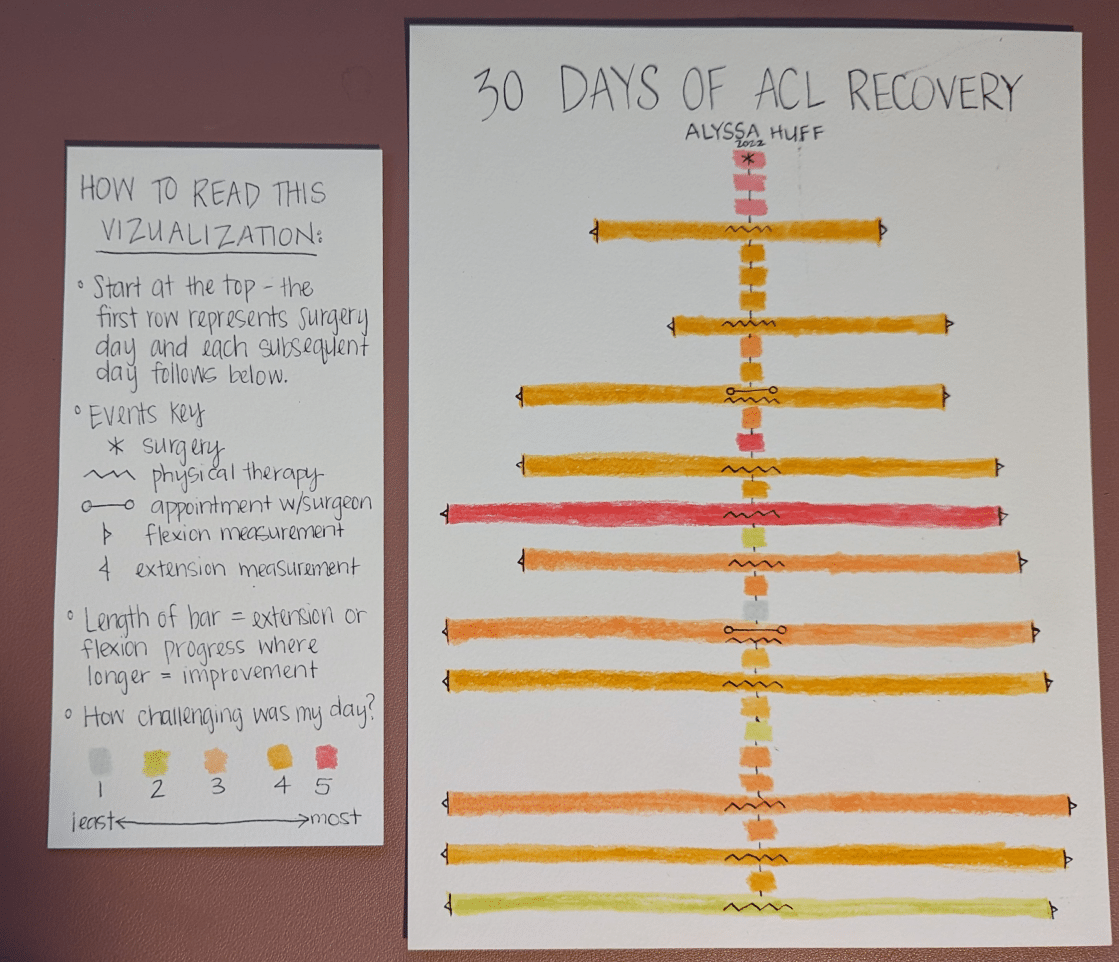 30 DAYS OF ACL RECOVERY
ALYSSA HUFF
2022
HOW TO READ THIS
VIZUALIZATION:
Start at the top - the
first row represents surgery
day and each subsequent
day follows below.
Events key
surgery
physical therapy
appointment w/surgeon
flexion measurement
extension measurement
Length of bar = extension or
flexion progress where
longer = improvement
How challenging was my day?
1 2 3 4 5
least most